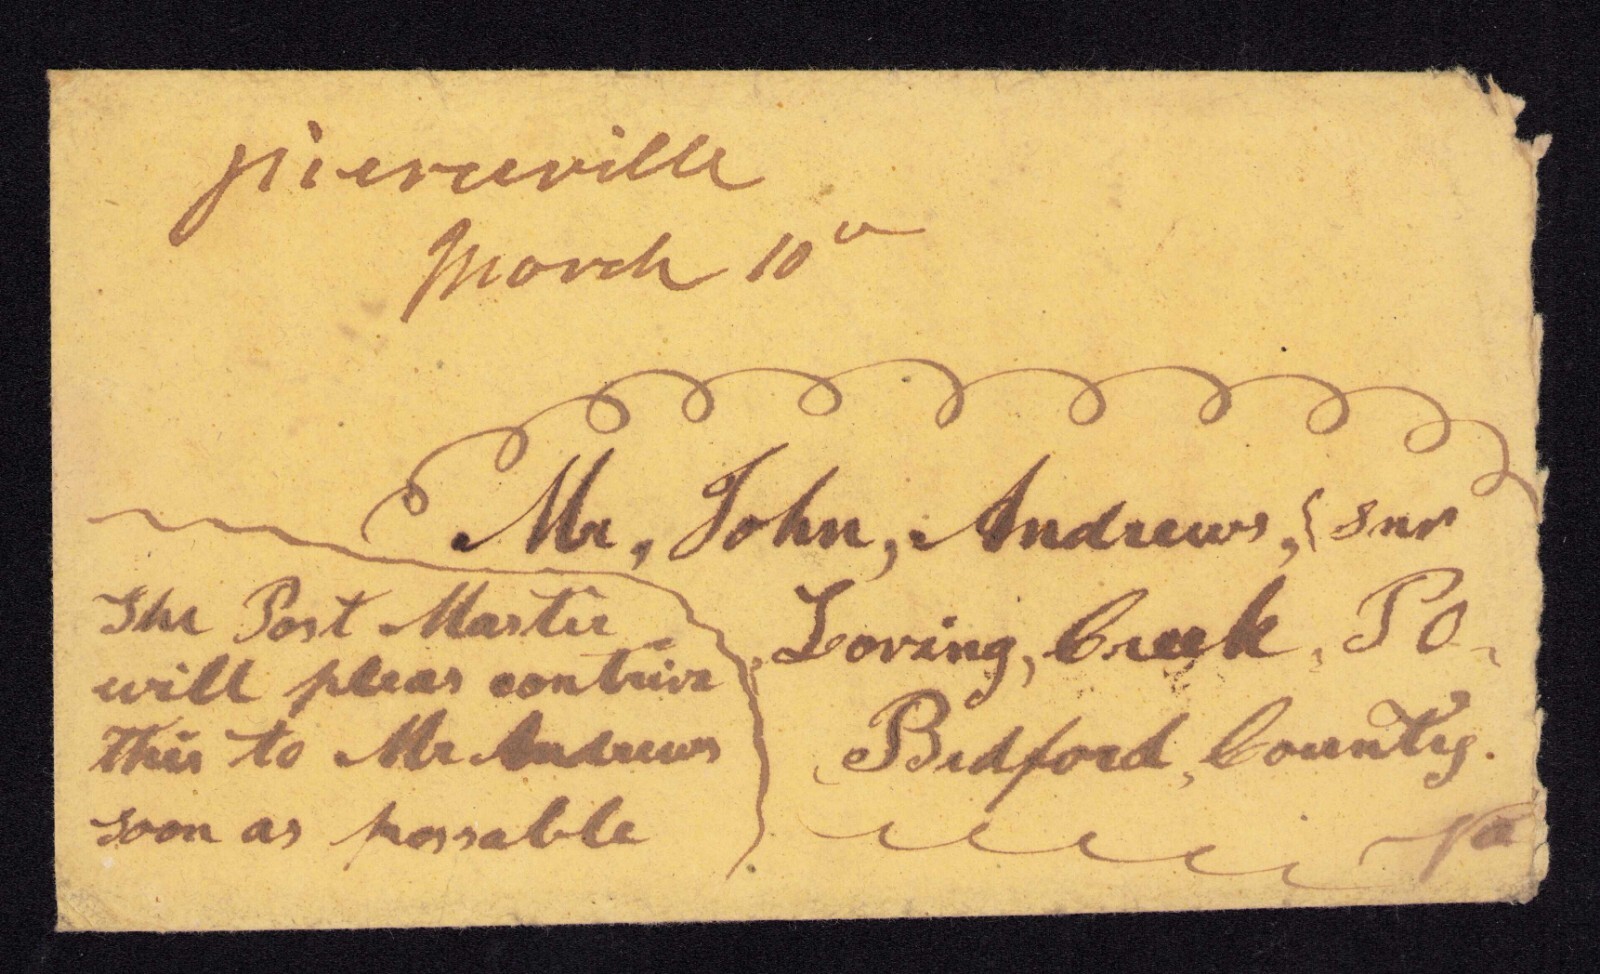 pierceville
March 10th
Mr, John, Andrews, { snr
Loving, Creek, PO,
Bedford, County.
Va
The Post Master
will pleas contrive
this to Mr Andrews
soon as possable